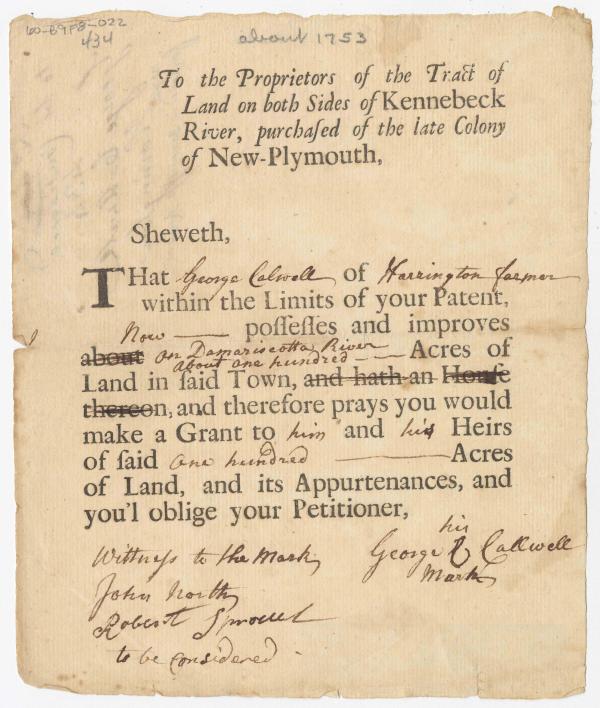 60-B9F8-022
434
about 1753
To the Proprietors of the Tract of
Land on both Sides of Kennebeck
River, purchaſed of the late Colony
of New-Plymouth,
Sheweth,
THat George Calwell of Harrington farmer
within the Limits of your Patent,
Now — poſſeſſes and improves
about on Damariscotta River
about one hundred — Acres of
Land in ſaid Town, and hath an Houſe
thereon, and therefore prays you would
make a Grant to him and his Heirs
of ſaid one hundred — Acres
of Land, and its Appurtenances, and
you'l oblige your Petitioner,
his
Wittness to the Mark George Callwell
Mark
John North
Robert Sproul
to be considered